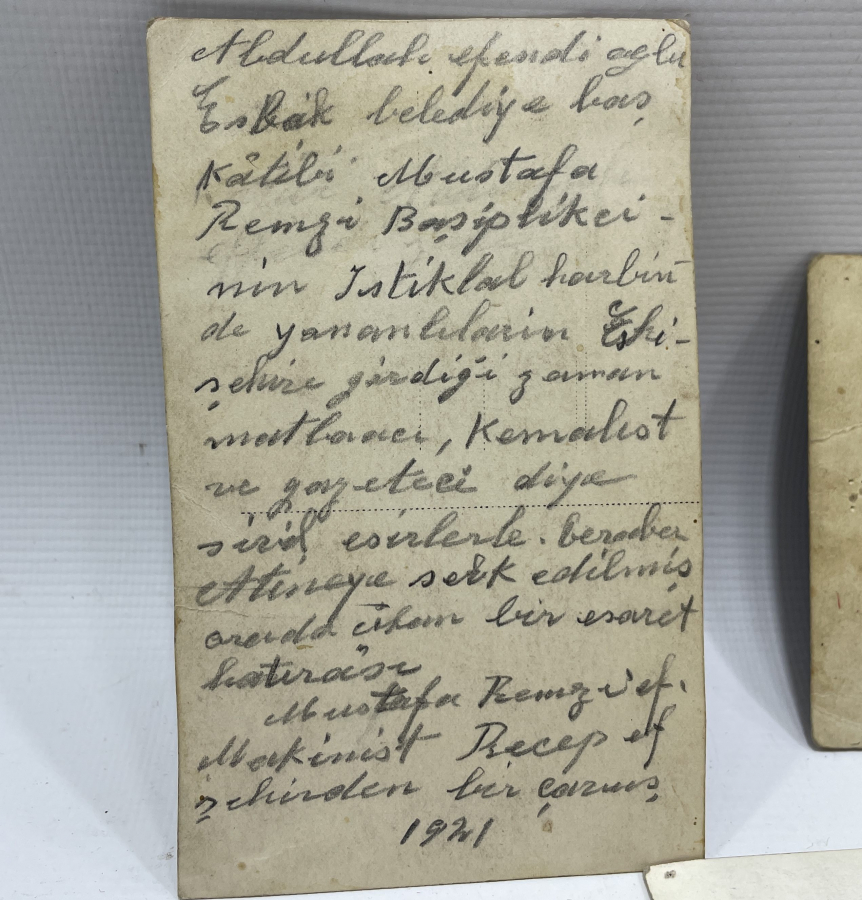 Abdullah efendi oglu
Esbak belediye baş
Kâtibi Mustafa
Remzi Başiplikci -
nin Istiklal harbin
de yunanlıların Eski-
şehire girdiği zaman
matbaacı, Kemalist
ve gazeteci diye
sivil esirlerle. beraber
Atinaya sevk edilmiş
orada çıkan bir esaret
hatırası
Mustafa Remzi ef.
Makinist Recep ef
şehirden bir çavuş
1921